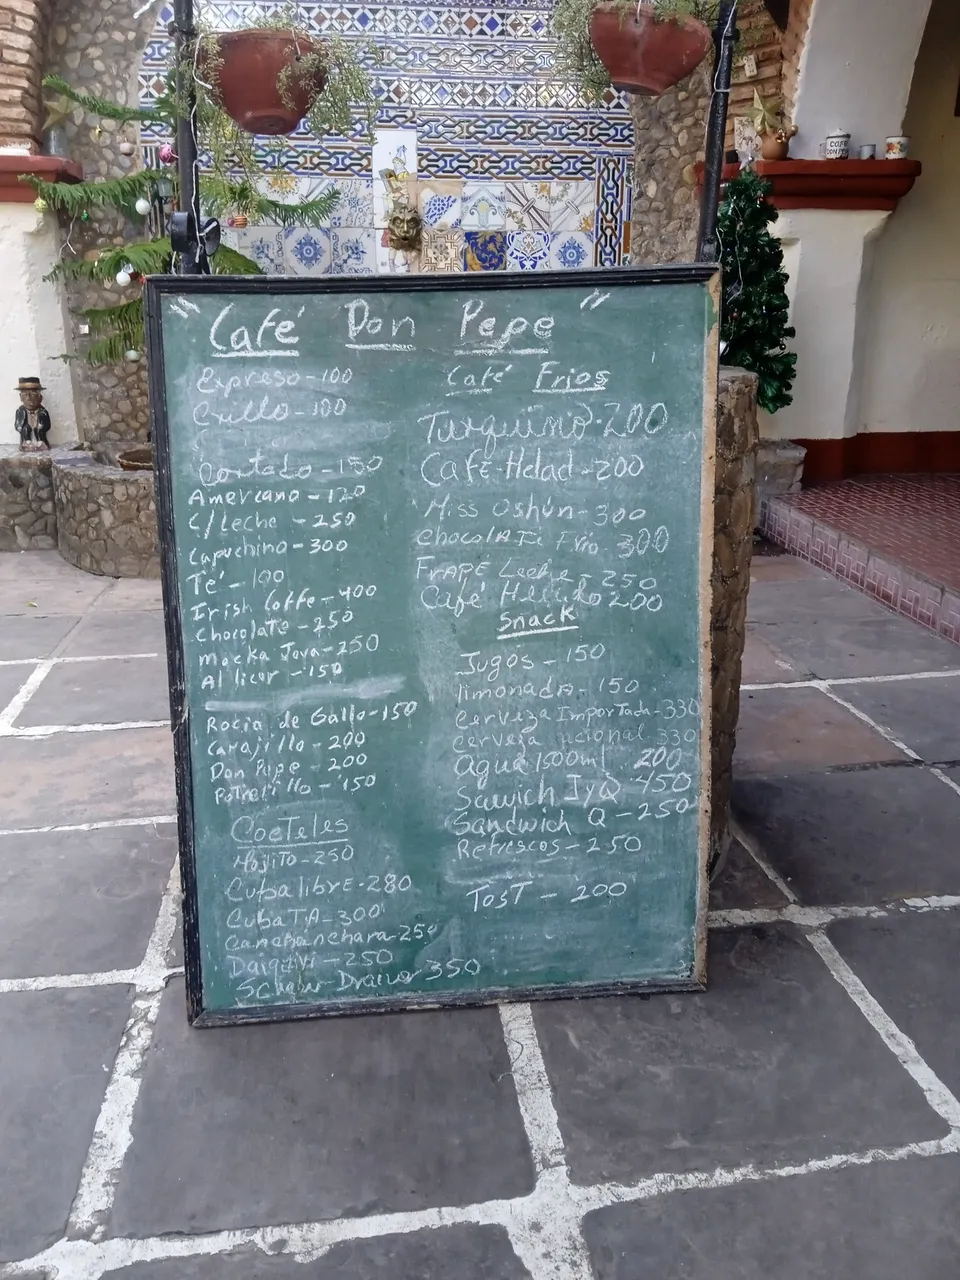 " Café Don Pepe "
Expreso-100
Crillo-100
Cortado-150
Amervano-120
C/Leche -250
Capuchino-300
Té-100
Irish Coffe-400
Chocolate-250
Mocka Java-250
Al licor-150
Rocia de Gallo-150
Carajillo-200
Don Pepe -200
Potrerillo-150
Cocteles
Mojito-250
Cubalibre-280
CubaTA-300
Canchanchara-250
Daiquiri-250
350
Café Frios
Turquino-200
CaFE-Helad-200
Miss Oshún-300
ChocolATe Frio 300
FRAPE Leche-250
Café Helado 200
Snack
Jugos-150
limonadA-150
Cerveza ImporTada-330
Cerveza acional 330
Agua 1500ml 200
Sawich JyQ 450
Sandwich Q-250
Refrescos-250
TosT-200
CAFÉ